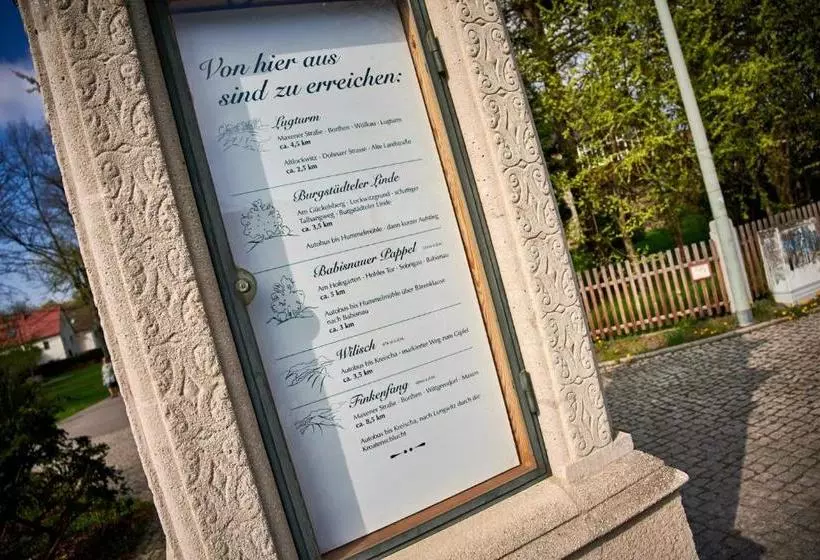 Von hier aus
sind zu erreichen:
Lugturm
Maxener Straße · Borthen · Wölkau · Lugturm
ca. 4,5 km
Altlockwitz · Dohnaer Strasse · Alte Landstraße
ca. 2,5 km
Burgstädteler Linde
Am Gückelsberg · Lockwitzgrund · schattiger
Talhangweg · Burgstädteler Linde
ca. 3,5 km
Autobus bis Hummelmühle · dann kurzer Aufstieg
Babisnauer Pappel
Am Hofegarten · Hohles Tor · Sobrigau · Babisnau
ca. 5 km
Autobus bis Hummelmühle über Bärenklause
nach Babisnau
ca. 3 km
Wilisch
Autobus bis Kreischa · markierter Weg zum Gipfel
ca. 3,5 km
Finkenfang
Maxener Straße · Borthen · Wittgensdorf · Maxen
ca. 8,5 km
Autobus bis Kreischa, nach Lungwitz durch die
Kroatenschlucht